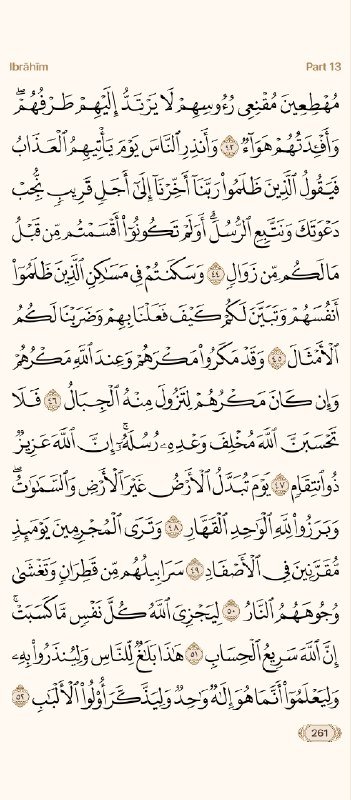 Ibrâhîm Part 13
مُهْطِعِينَ مُقْنِعِى رُءُوسِهِمْ لَا يَرْتَدُّ إِلَيْهِمْ طَرْفُهُمْ ۖ
وَأَفْـِٔدَتُهُمْ هَوَآءٌ ٤٣ وَأَنذِرِ ٱلنَّاسَ يَوْمَ يَأْتِيهِمُ ٱلْعَذَابُ
فَيَقُولُ ٱلَّذِينَ ظَلَمُوا۟ رَبَّنَآ أَخِّرْنَآ إِلَىٰٓ أَجَلٍ قَرِيبٍ نُّجِبْ
دَعْوَتَكَ وَنَتَّبِعِ ٱلرُّسُلَ ۗ أَوَلَمْ تَكُونُوٓا۟ أَقْسَمْتُم مِّن قَبْلُ
مَا لَكُم مِّن زَوَالٍ ٤٤ وَسَكَنتُمْ فِى مَسَٰكِنِ ٱلَّذِينَ ظَلَمُوٓا۟
أَنفُسَهُمْ وَتَبَيَّنَ لَكُمْ كَيْفَ فَعَلْنَا بِهِمْ وَضَرَبْنَا لَكُمُ
ٱلْأَمْثَالَ ٤٥ وَقَدْ مَكَرُوا۟ مَكْرَهُمْ وَعِندَ ٱللَّهِ مَكْرُهُمْ
وَإِن كَانَ مَكْرُهُمْ لِتَزُولَ مِنْهُ ٱلْجِبَالُ ٤٦ فَلَا
تَحْسَبَنَّ ٱللَّهَ مُخْلِفَ وَعْدِهِۦ رُسُلَهُۥٓ ۗ إِنَّ ٱللَّهَ عَزِيزٌ
ذُو ٱنتِقَامٍ ٤٧ يَوْمَ تُبَدَّلُ ٱلْأَرْضُ غَيْرَ ٱلْأَرْضِ وَٱلسَّمَٰوَٰتُ ۖ
وَبَرَزُوا۟ لِلَّهِ ٱلْوَٰحِدِ ٱلْقَهَّارِ ٤٨ وَتَرَى ٱلْمُجْرِمِينَ يَوْمَئِذٍ
مُّقَرَّنِينَ فِى ٱلْأَصْفَادِ ٤٩ سَرَابِيلُهُم مِّن قَطِرَانٍ وَتَغْشَىٰ
وُجُوهَهُمُ ٱلنَّارُ ٥٠ لِيَجْزِىَ ٱللَّهُ كُلَّ نَفْسٍ مَّا كَسَبَتْ ۚ
إِنَّ ٱللَّهَ سَرِيعُ ٱلْحِسَابِ ٥١ هَٰذَا بَلَٰغٌ لِّلنَّاسِ وَلِيُنذَرُوا۟ بِهِۦ
وَلِيَعْلَمُوٓا۟ أَنَّمَا هُوَ إِلَٰهٌ وَٰحِدٌ وَلِيَذَّكَّرَ أُو۟لُوا۟ ٱلْأَلْبَٰبِ ٥٢
261